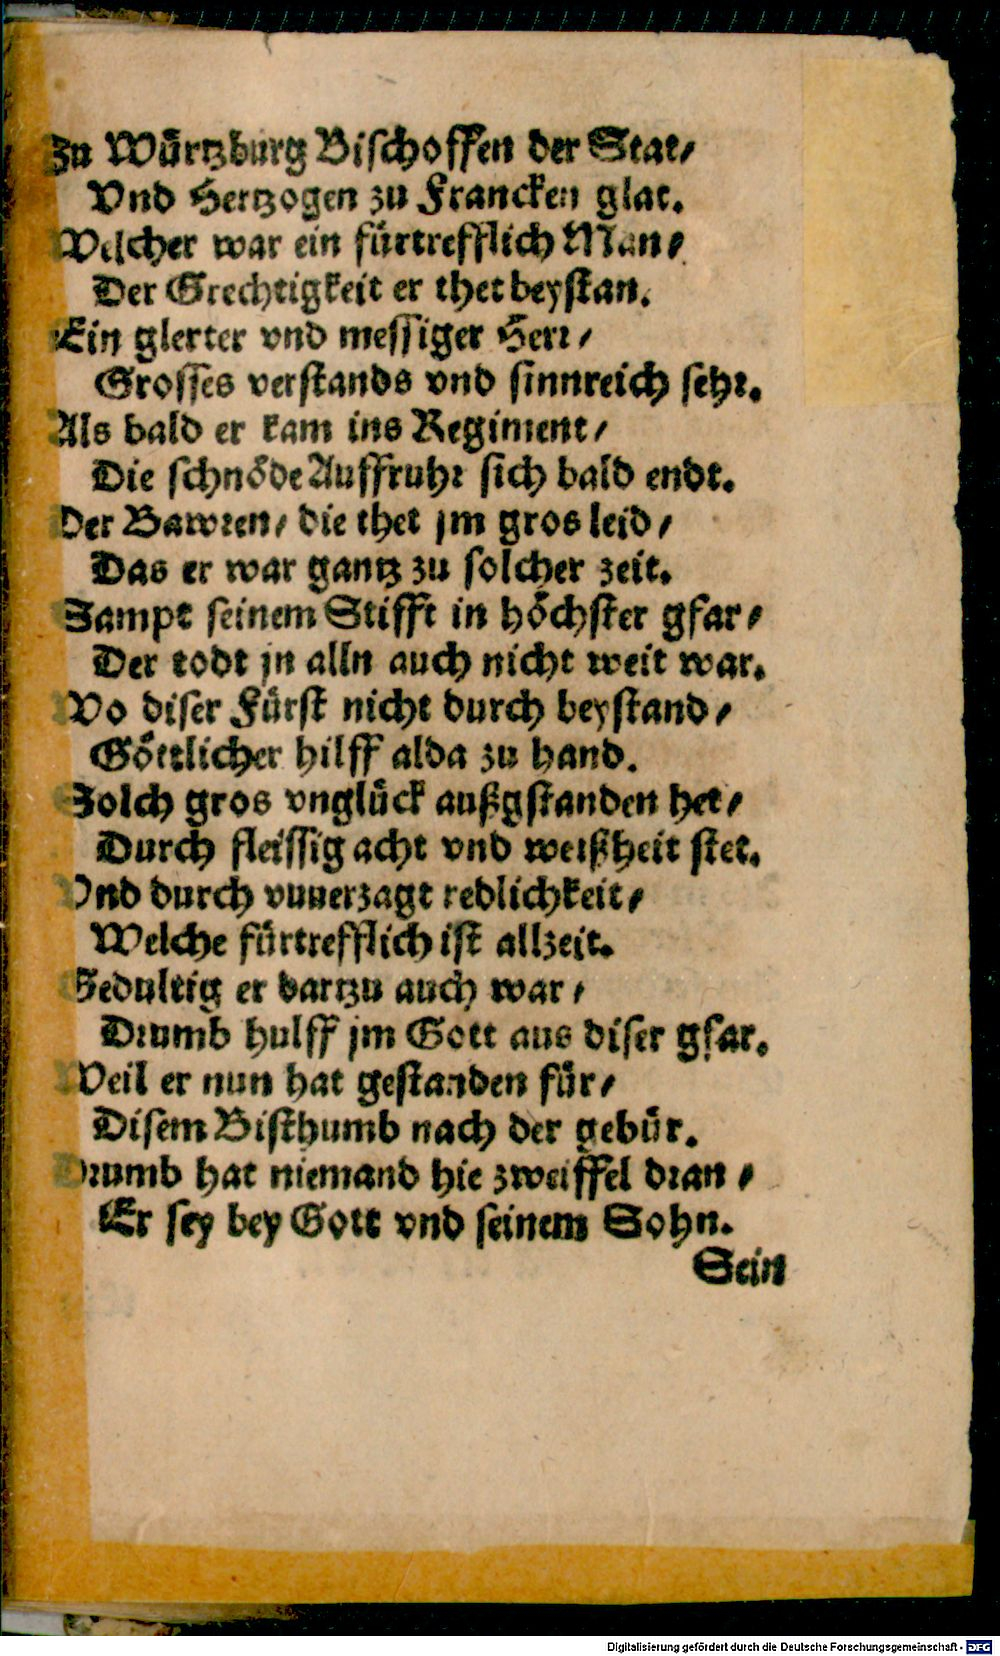 Zu Würtzburg Bischoffen der Stat/
Vnd Hertzogen zu Francken glat.
Welcher war ein fürtrefflich Man/
Der Grechtigkeit er thet beystan.
Ein glerter vnd messiger Herr/
Grosses verstands vnd sinnreich sehr.
Als bald er kam ins Regiment/
Die schnöde Auffruhr sich bald endt.
Der Bawren/ die thet jm gros leid/
Das er war gantz zu solcher zeit.
Sampt seinem Stifft in höchster gfar/
Der todt jn alln auch nicht weit war.
Wo diser Fürst nicht durch beystand/
Göttlicher hilff alda zu hand.
Solch gros vnglück außgstanden het/
Durch fleissig acht vnd weißheit stet.
Vnd durch vnuerzagt redlichkeit/
Welche fürtrefflich ist allzeit.
Gedultig er dartzu auch war/
Drumb hulff jm Gott aus diser gfar.
Weil er nun hat gestanden für/
Disem Bisthumb nach der gebür.
Drumb hat niemand hie zweiffel dran/
Er sey bey Gott vnd seinem Sohn.
Sein
Digitalisierung gefördert durch die Deutsche Forschungsgemeinschaft - DFG